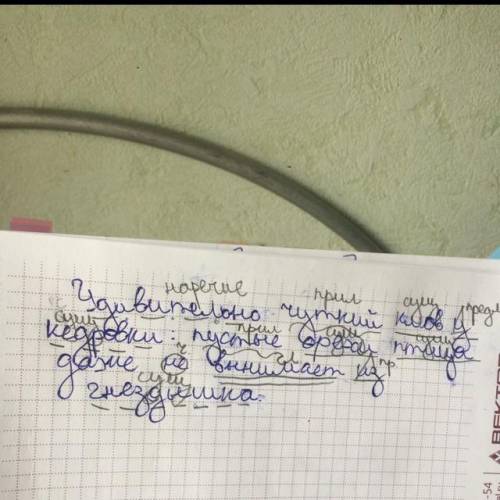 наречие прил сущ предл
Удивительно чуткий клюв у
сущ прил сущ сущ
кедровки: пустые орехи птица
ч гл пр.
даже не вынимает из
сущ
гнёздышка.
54